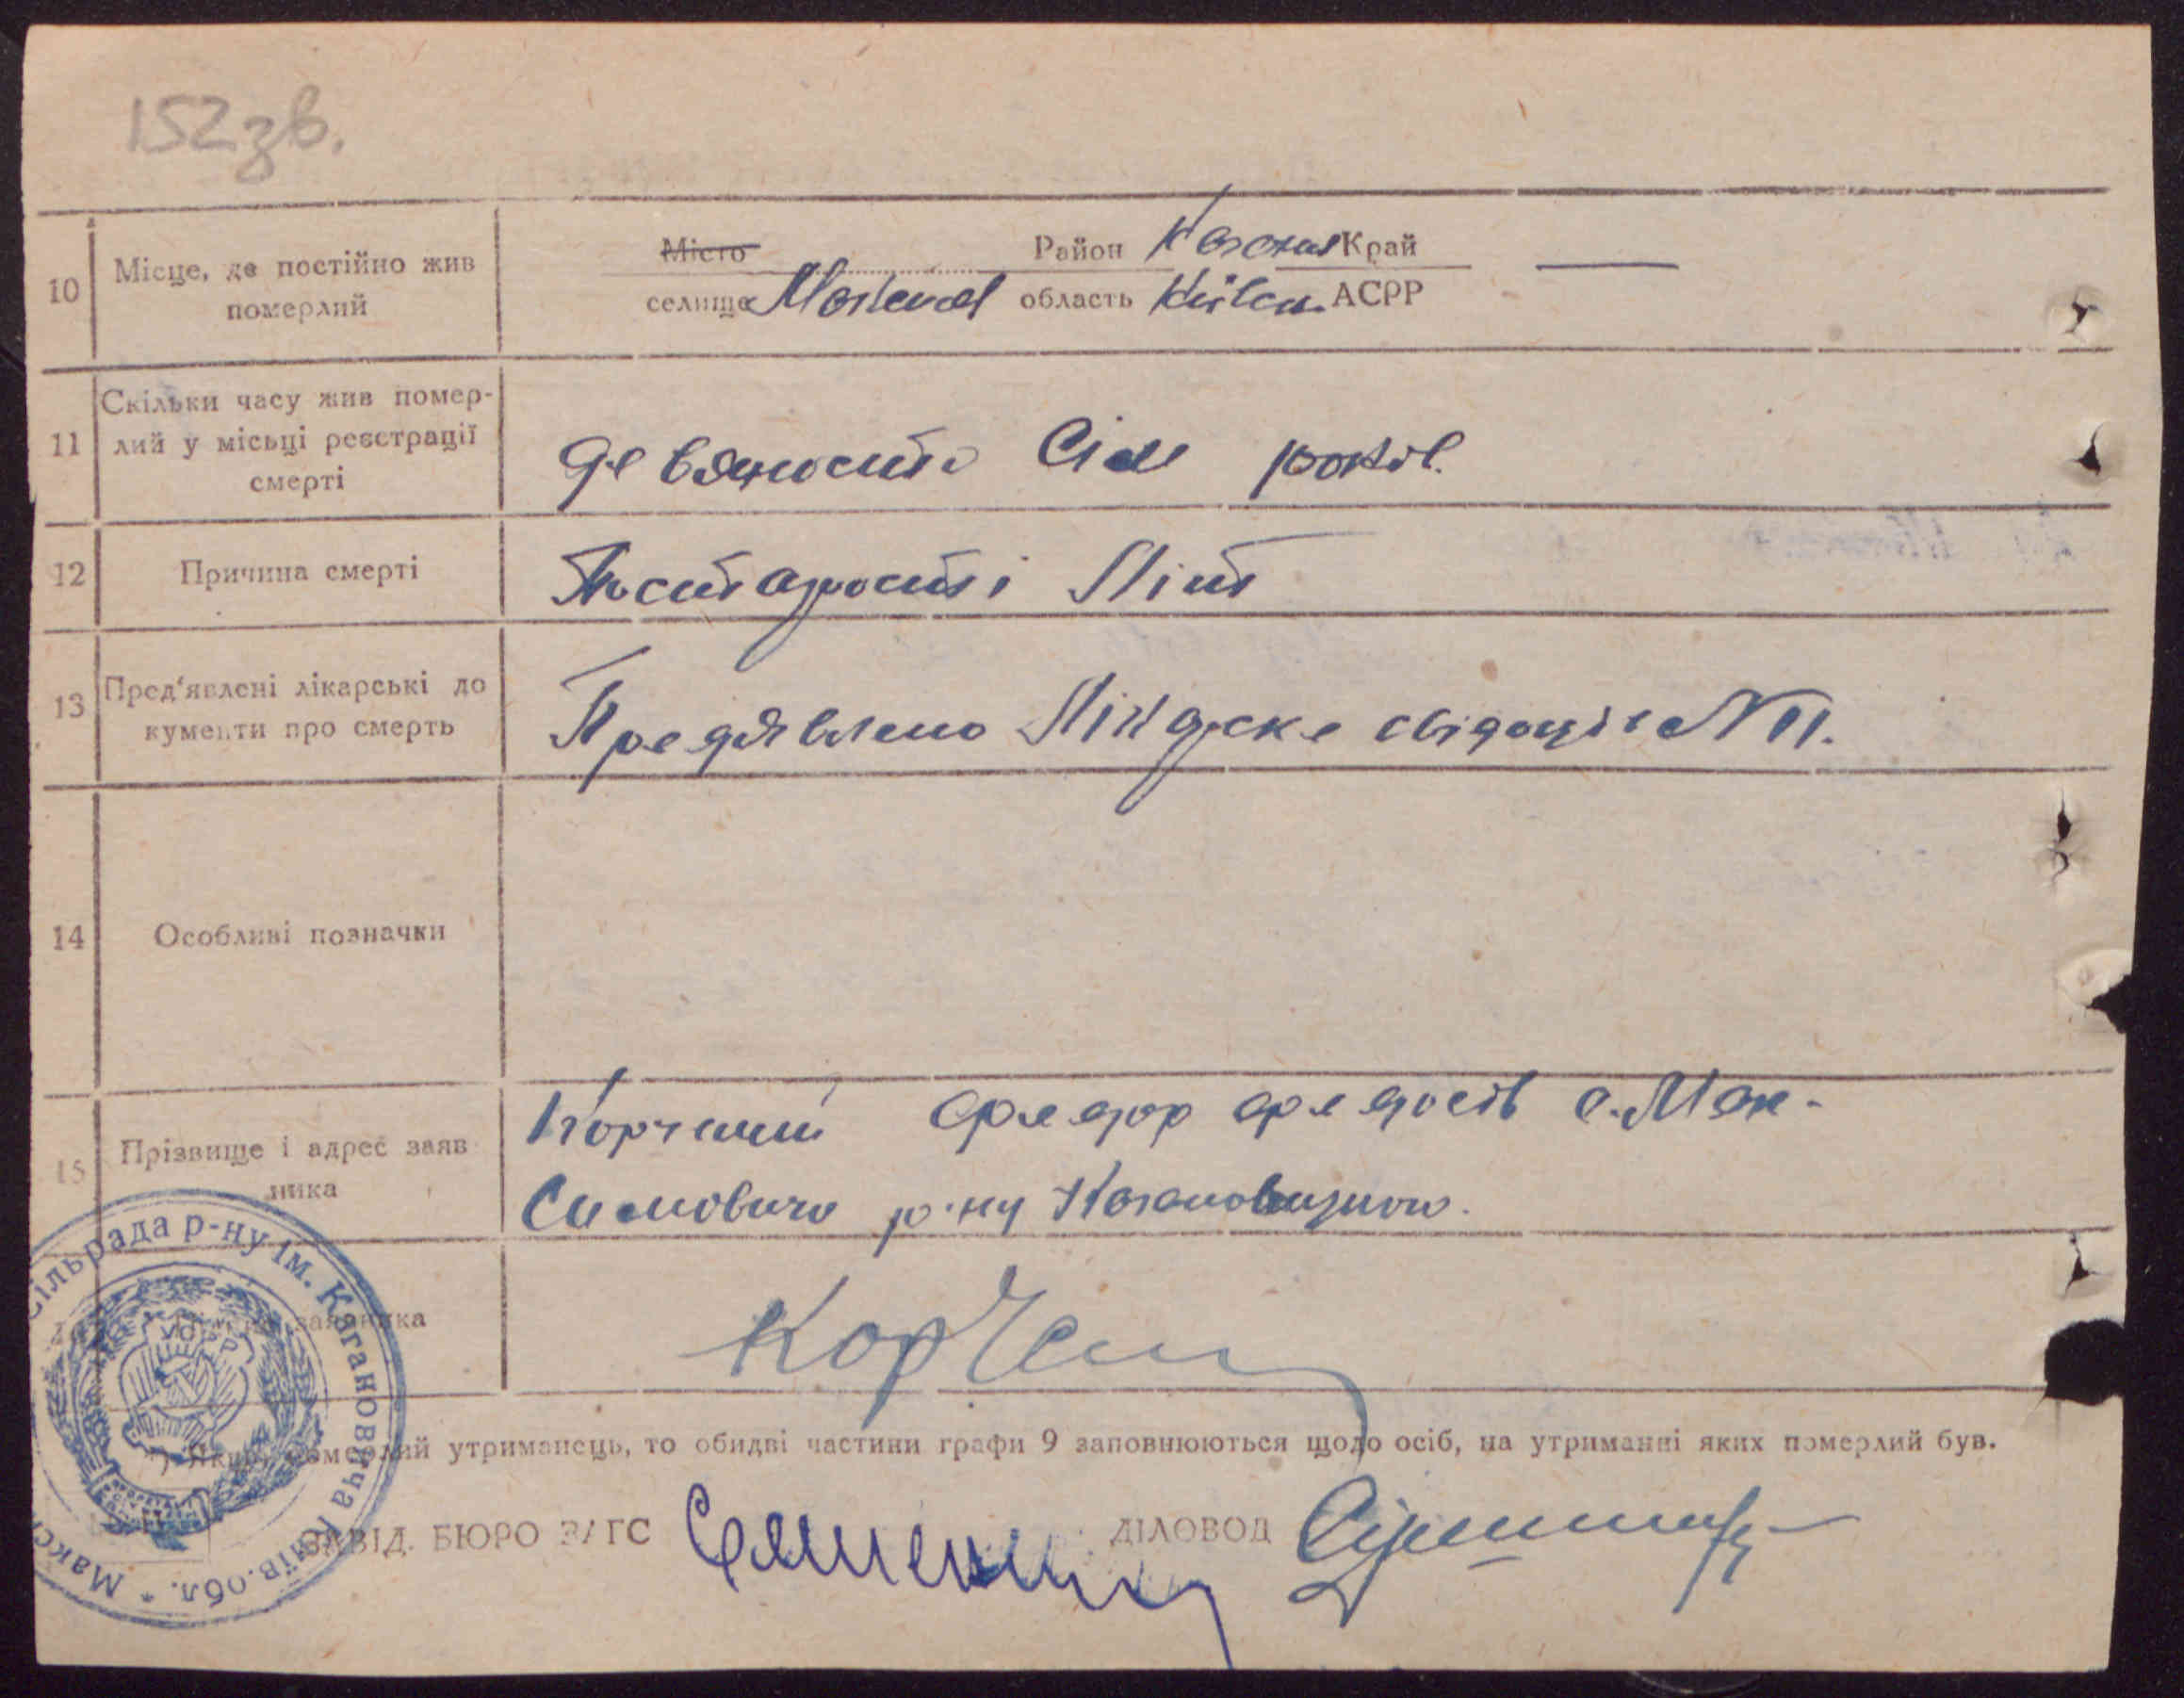 152зв.
10 Місце, де постійно жив померлий
Місто Район Каганов Край —
селище область Київськ. АСРР
11 Скільки часу жив помер-
лий у місьці реєстрації
смерті
девяносто Сім років.
12 Причина смерті
Постарості Літ
13 Пред'явлені лікарські до
кументи про смерть
Предявлено Лікарске свідоцтво №11.
14 Особливі позначки
15 Прізвище і адрес заяв
ника
Корчений Федор Федосів с. Мак-
симовичи р-ну Кагановичного.
заявника
Корчени
*) Якщо померлий утриманець, то обидві частини графи 9 заповнюються щодо осіб, на утриманні яких померлий був.
ЗАВІД. БЮРО ЗАГС ДІЛОВОД
сільрада р-ну ім. Кагановича Київ. обл. * Макс
УСРР